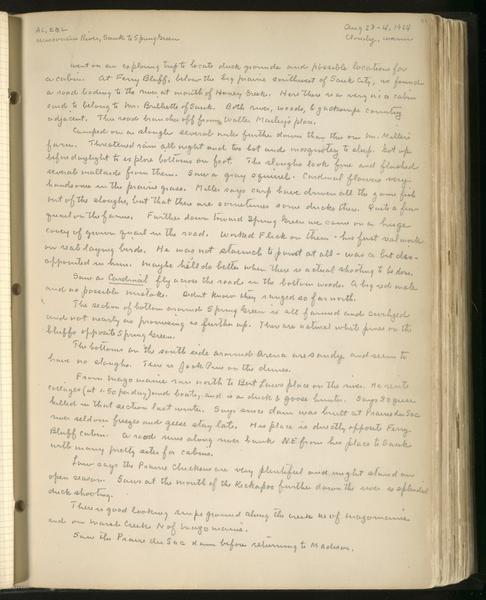 AL, CBL
Aug 23-4, 1924
Wisconsin River, Sauk to Spring Green
Cloudy, warm
Went on an exploring trip to locate duck grounds and possible locations for
a cabin. At Ferry Bluff, below the big prairie southwest of Sauk City, we found
a road leading to the river at mouth of Honey Creek. Here there is a very nice cabin
said to belong to Mr. of Sauk. Both river, woods, & jacksnipe country
adjacent. The road branches off from Walter Manley's place.
Camped on a slough several miles further down than this on Mr. Miller's
farm. Threatened rain all night and too hot and mosquitoey to sleep. Got up
before daylight to explore bottoms on foot. The sloughs look fine and flushed
several mallards from them. Saw a gray squirrel. Cardinal flowers very
handsome in the prairie grass. Miller says carp have driven all the game fish
out of the sloughs, but that there are sometimes some ducks there. Quite a few
quail on the farms. Further down toward Spring Green we came on a huge
covey of grown quail in the road. Worked Flick on them - his first real work
on real laying birds. He was not staunch to point at all - was a bit dis-
appointed in him. Maybe he'll do better when there is actual shooting to be done.
Saw a Cardinal fly across the road in the bottom woods. A big red male
and no possible mistake. Didnt know they ranged so far north.
The section of bottom around Spring Green is all farmed and
and not nearly as promising as further up. There are natural white pines on the
bluffs opposite Spring Green.
The bottoms on the south side around Arena are sandy and seem to
have no sloughs. There is Jack Pine on the dunes.
From Mazomanie ran north to Bert Laws place on the river. He rents
cottages (at 1.50 per day) and boats, and is a duck & goose hunter. Says 30 geese
killed in that section last winter. Says since dam was built at Prairie du Sac
river seldom freezes and geese stay late. His place is directly opposite Ferry
Bluff cabin. A road runs along river bank N.E. from his place to Sauk
with many pretty sites for cabins.
Law says the Prairie Chickens are very plentiful and might stand an
open season. Says at the mouth of the Kickapoo further down the river is splendid
duck shooting.
There is good looking snipe ground along the creek NE of Mazomanie
and on Marsh Creek N of Mazomanie.
Saw the Prairie du Sac dam before returning to Madison.